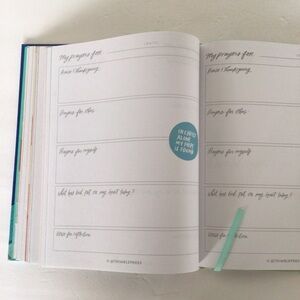 My prayers for:
DATE:
Praise & thanksgiving
Prayers for others
Prayers for myself
IN CHRIST
ALONE
MY HOPE
IS FOUND
What has God put on my heart today?
Verse for reflection
My prayers for:
Praise & thanksgiving
Prayers for others
Prayers for myself
What has God put on my heart today?
Verse for reflection